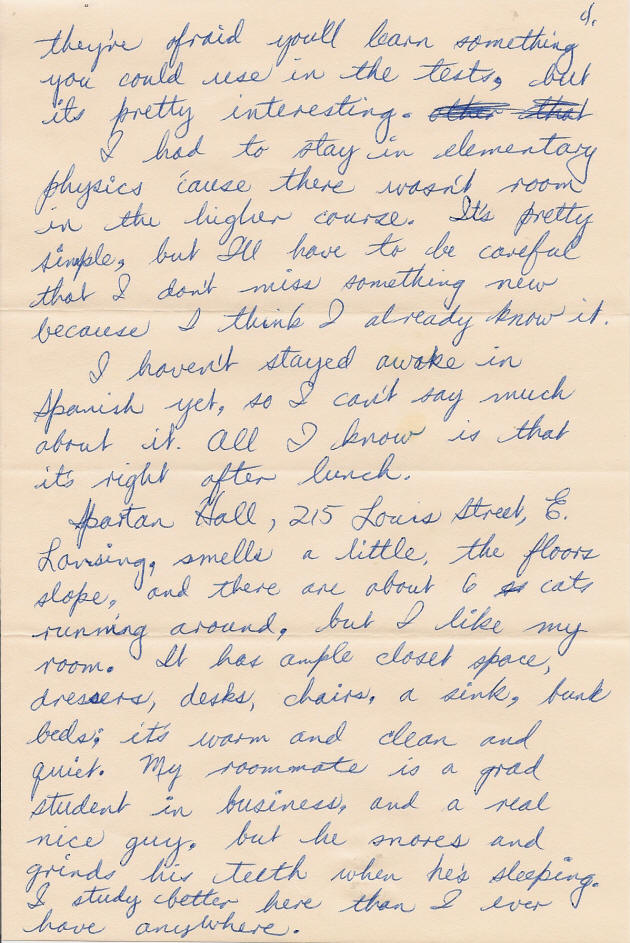 they're afraid you'll learn something
you could use in the tests, but
its pretty interesting. other that
I had to stay in elementary
physics 'cause there wasn't room
in the higher course. It's pretty
simple, but I'll have to be careful
that I don't miss something new
because I think I already know it.
I haven't stayed awake in
Spanish yet, so I can't say much
about it. All I know is that
it's right after lunch.
Spartan Hall, 215 Louis Street, E.
Lansing, smells a little, the floors
slope, and there are about 6 cats
running around, but I like my
room. It has ample closet space,
dressers, desks, chairs, a sink, bunk
beds; it's warm and clean and
quiet. My roommate is a grad
student in business, and a real
nice guy, but he snores and
grinds his teeth when he's sleeping.
I study better here than I ever
have anywhere.